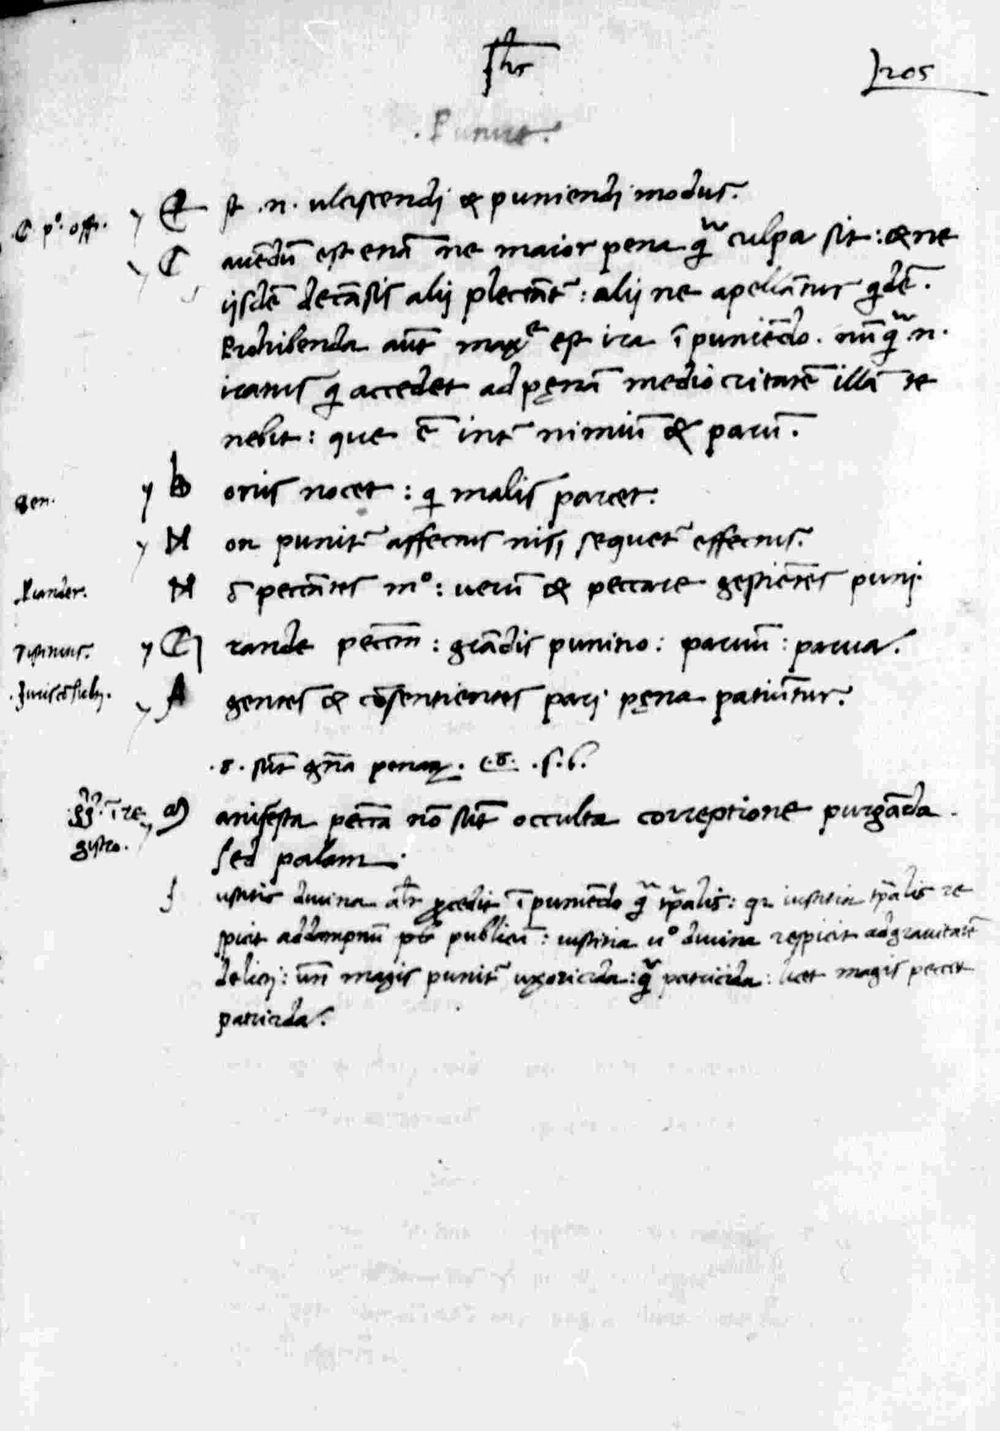 Jhs
205
.Punire.
.C. p°. off. E st .n. ulciscendi & puniendi modus.
C avēdū est etiā ne maior pena q̄ culpa sit: & ne
ijsdē de cāsis alij plectāt̄: alij ne apellātur qdē.
Prohibenda aūt maxe est ira ī puniēdo. nūq̄ .n.
iratus q accedet ad pęnā mediocritatē illā te
nebit: que ē int̄ nimiū & parū.
Sen. B onis nocet: q malis parcet.
N on punit̄ affectus nisi sequet̄ effectus.
N ō peccātes m°: verū & peccare gestiētes puni.
G rande peccm̄: grādis punitio: parvū: parva.
.Juriscōsulti. A gentes & cōsentientes pari pęna patiūtur.
.8. sūt gña penaꝝ. c.8. .s.b.
.gg. ī re M anifesta peccā nō sūt occulta correptione purgāda.
gistro. sed palam.
J ustitia divina alr̄ procedit ī puniēdo q̄ tp̄alis: qr iustitia tp̄alis re
spicit ad dampnū publicū: iustitia v° divina respicit ad gravitatē
delicti: uñ magis punit̄ uxoricida: q̄ patricida: licet magis peccet
patricida.